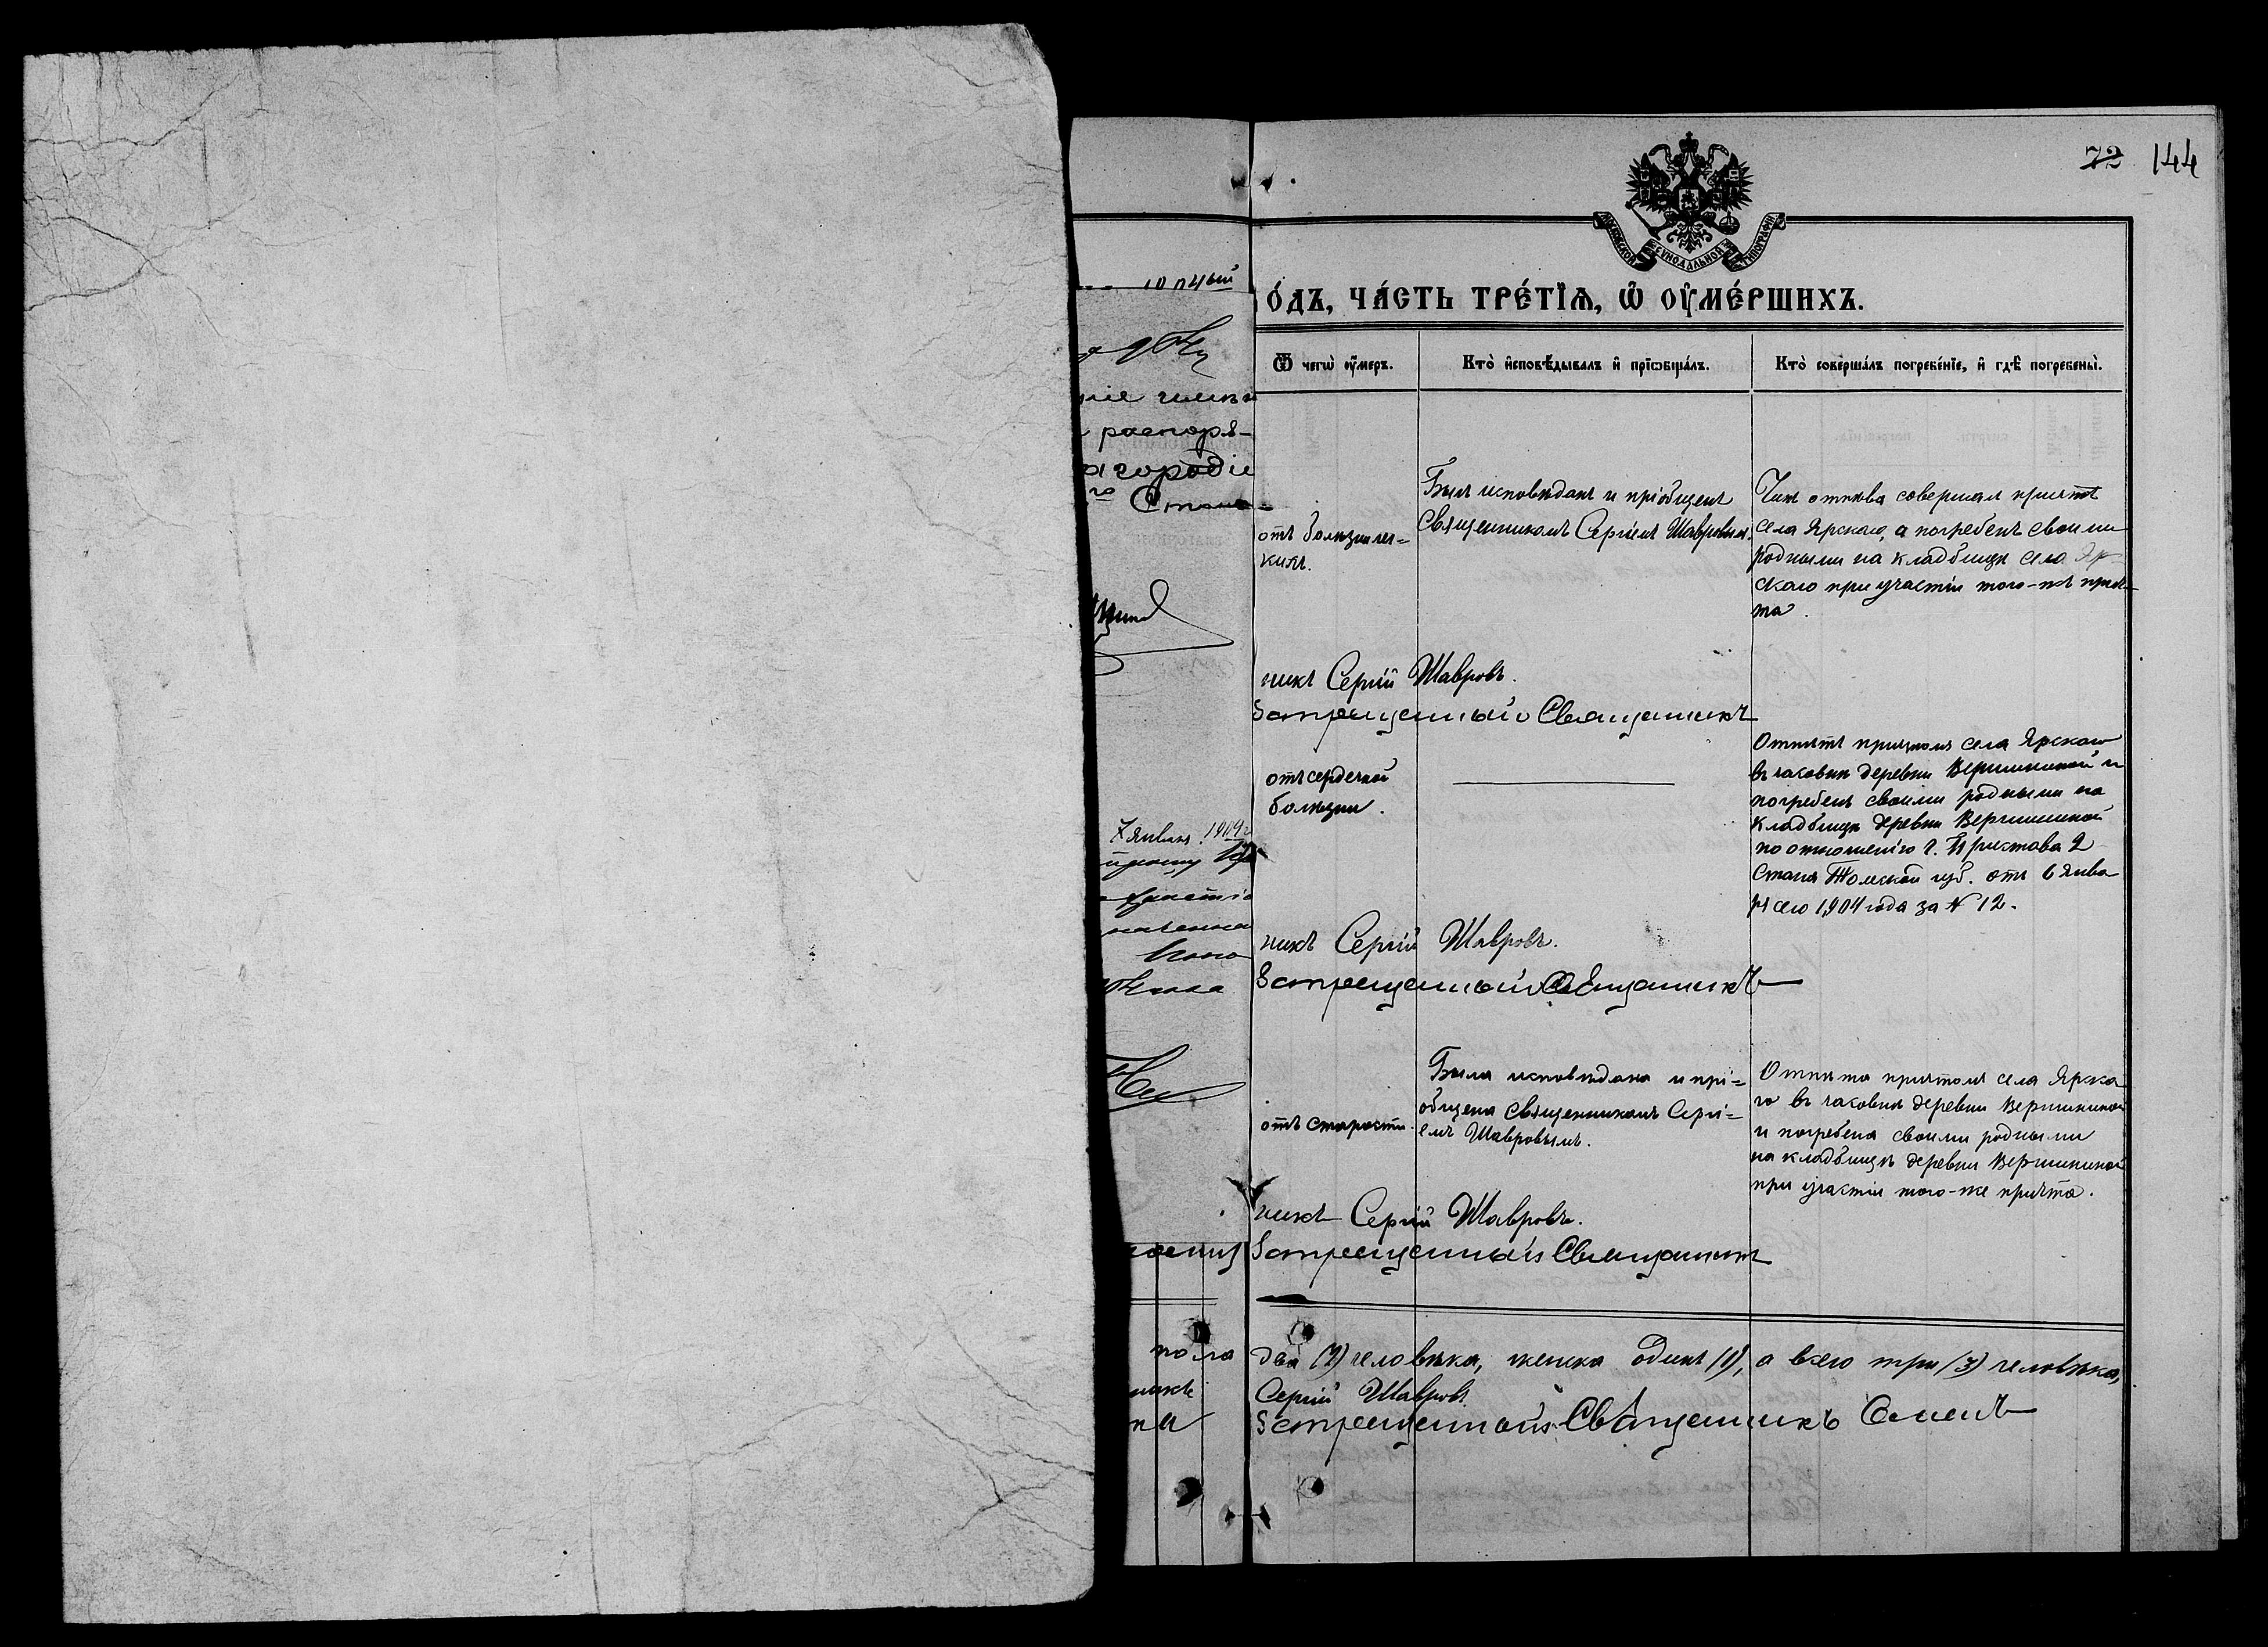 72 144
МОСКОВСКОЙ СѴНОДАЛЬНОЙ ТИПОГРАФІИ
О́ДЪ, ЧА́СТЬ ТРЕ́ТЇѦ, Ѽ ОУ҆МЕ́РШИХЪ.
Ѿ чегѡ̀ оу҆́меръ.
Кто̀ и҆сповѣ́дывалъ и҆ прїѡбща́лъ.
Кто̀ соверша́лъ погребе́нїе, и҆ гдѣ̀ погребены̀.
распоря-
Стано-
отъ болѣзни лег-
кихъ.
Былъ исповѣданъ и пріобщенъ
Священникомъ Сергіемъ Шавровымъ.
Чинъ отпѣва совершалъ причтъ
села Ярскаго, а погребенъ своими
родными на кладбищѣ села Яр-
скаго при участіи того-же прич-
та.
никъ Сергій Шавровъ.
Запрещенный Священникъ
отъ сердечной
болѣзни.
Отпѣтъ причтомъ села Ярскаго
въ часовнѣ деревни Вершининой и
погребенъ своими родными на
кладбищѣ деревни Вершининой
по отношенію г. Пристава 2
Стана Томской губ. отъ 6 Янва
ря сего 1904 года за № 12.
7 Января 1904 г
никъ Сергій Шавровъ.
Запрещенный Священникъ
отъ старости.
Была исповѣдана и прі-
общена Священникомъ Сергі-
емъ Шавровымъ.
Отпѣта причтомъ села Ярска
го въ часовнѣ деревни Вершининой
и погребена своими родными
на кладбищѣ деревни Вершининой
при участіи того-же причта.
никъ Сергій Шавровъ.
Запрещенный Священникъ
пола два (2) человѣка, женска одинъ (1), а всего три (3) человѣка,
никъ Сергій Шавровъ.
Запрещенный Священникъ Симеонъ